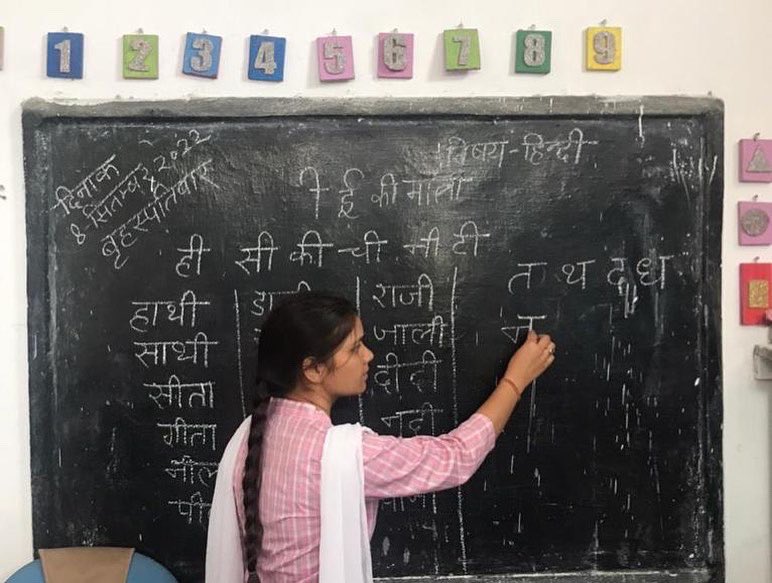 1 2 3 4 5 6 7 8 9
दिनांक
8 सितम्बर, 2022
बृहस्पतिवार
विषय - हिन्दी
ी ई की मात्रा
ही सी की ची नी टी
हाथी
साथी
सीता
गीता
राजी
जाली
दीदी
नदी
त थ द ध
न